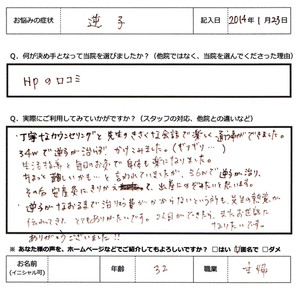 お悩みの症状 逆子 記入日 2014年1月23日
Q．何が決め手となって当院を選びましたか？（他院ではなく、当院を選んでくださった理由）
HPの口コミ
Q．実際にご利用してみていかがですか？（スタッフの対応、他院との違いなど）
丁寧なカウンセリングと先生の気さくな会話で楽しく通う事ができました。
34wで逆子が治らず かけこみました。
生活改善と毎日のお灸で身体も楽になりました。
ちょっと難しいかも…と言われていましたが、で逆子が治り、
その後安産灸にきりかえ て、出産にのぞみたいと思います。
逆子がなおるまで治り お がかからないという所も、先生の熱意が
伝わってきて とてもありがたいです。2人目ができたら、又お世話に
なりたいです。
ありがとうございました!!
※ あなた様の声を、ホームページなどでご紹介してもよろしいですか？ □はい □匿名で □ダメ
お名前 （イニシャル可） 年齢 32 職業 主婦